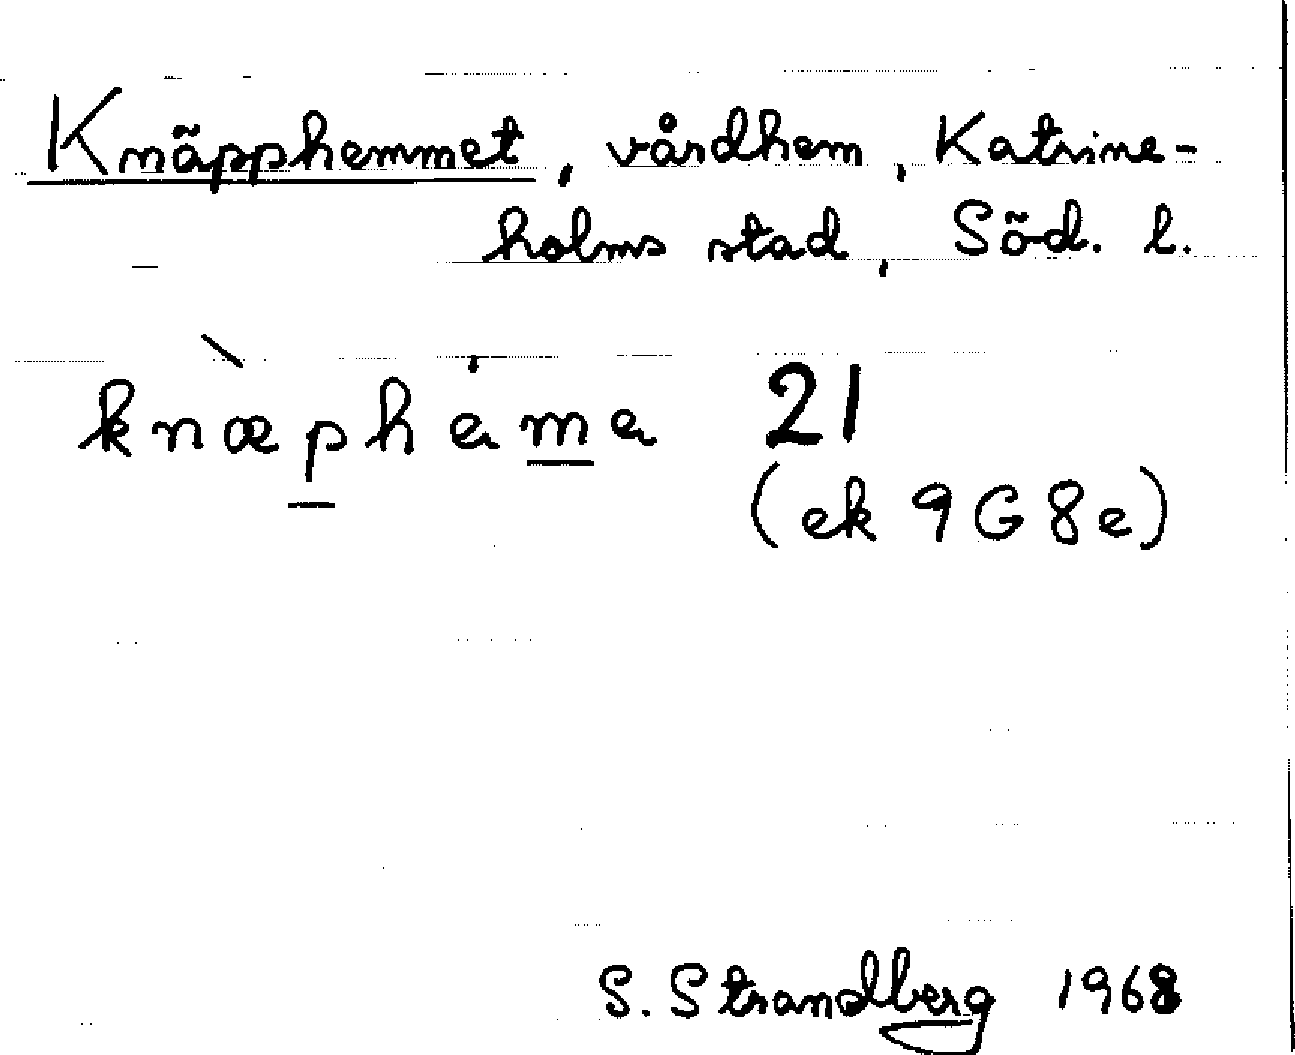 Knäpphemmet, vårdhem, Katrine-
holms stad, Söd. l.
knæ̀p̲hem̲e 21
(ek 9G8e)
S. Strandberg 1968